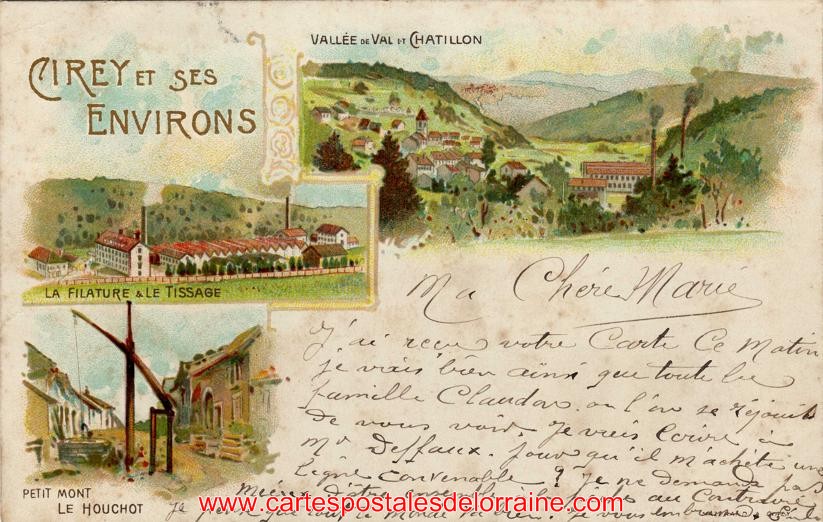 CIREY ET SES
ENVIRONS
VALLÉE DE VAL ET CHATILLON
LA FILATURE & LE TISSAGE
PETIT MONT
LE HOUCHOT
Ma Chère Marie
J'ai reçu votre Carte Ce Matin
je vais bien ainsi que toute la
famille Claudon. on l'on se réjouit
de vous voir. Je vais écrire à
Mr Deffaux. pour qu'il m'achète une
ligne Convenable ? je ne demande pas
mieux d'être ensemble à la pêche au Contraire
Je pense que tout le monde va bien. Je vous embrasse
www.cartespostalesdelorraine.com